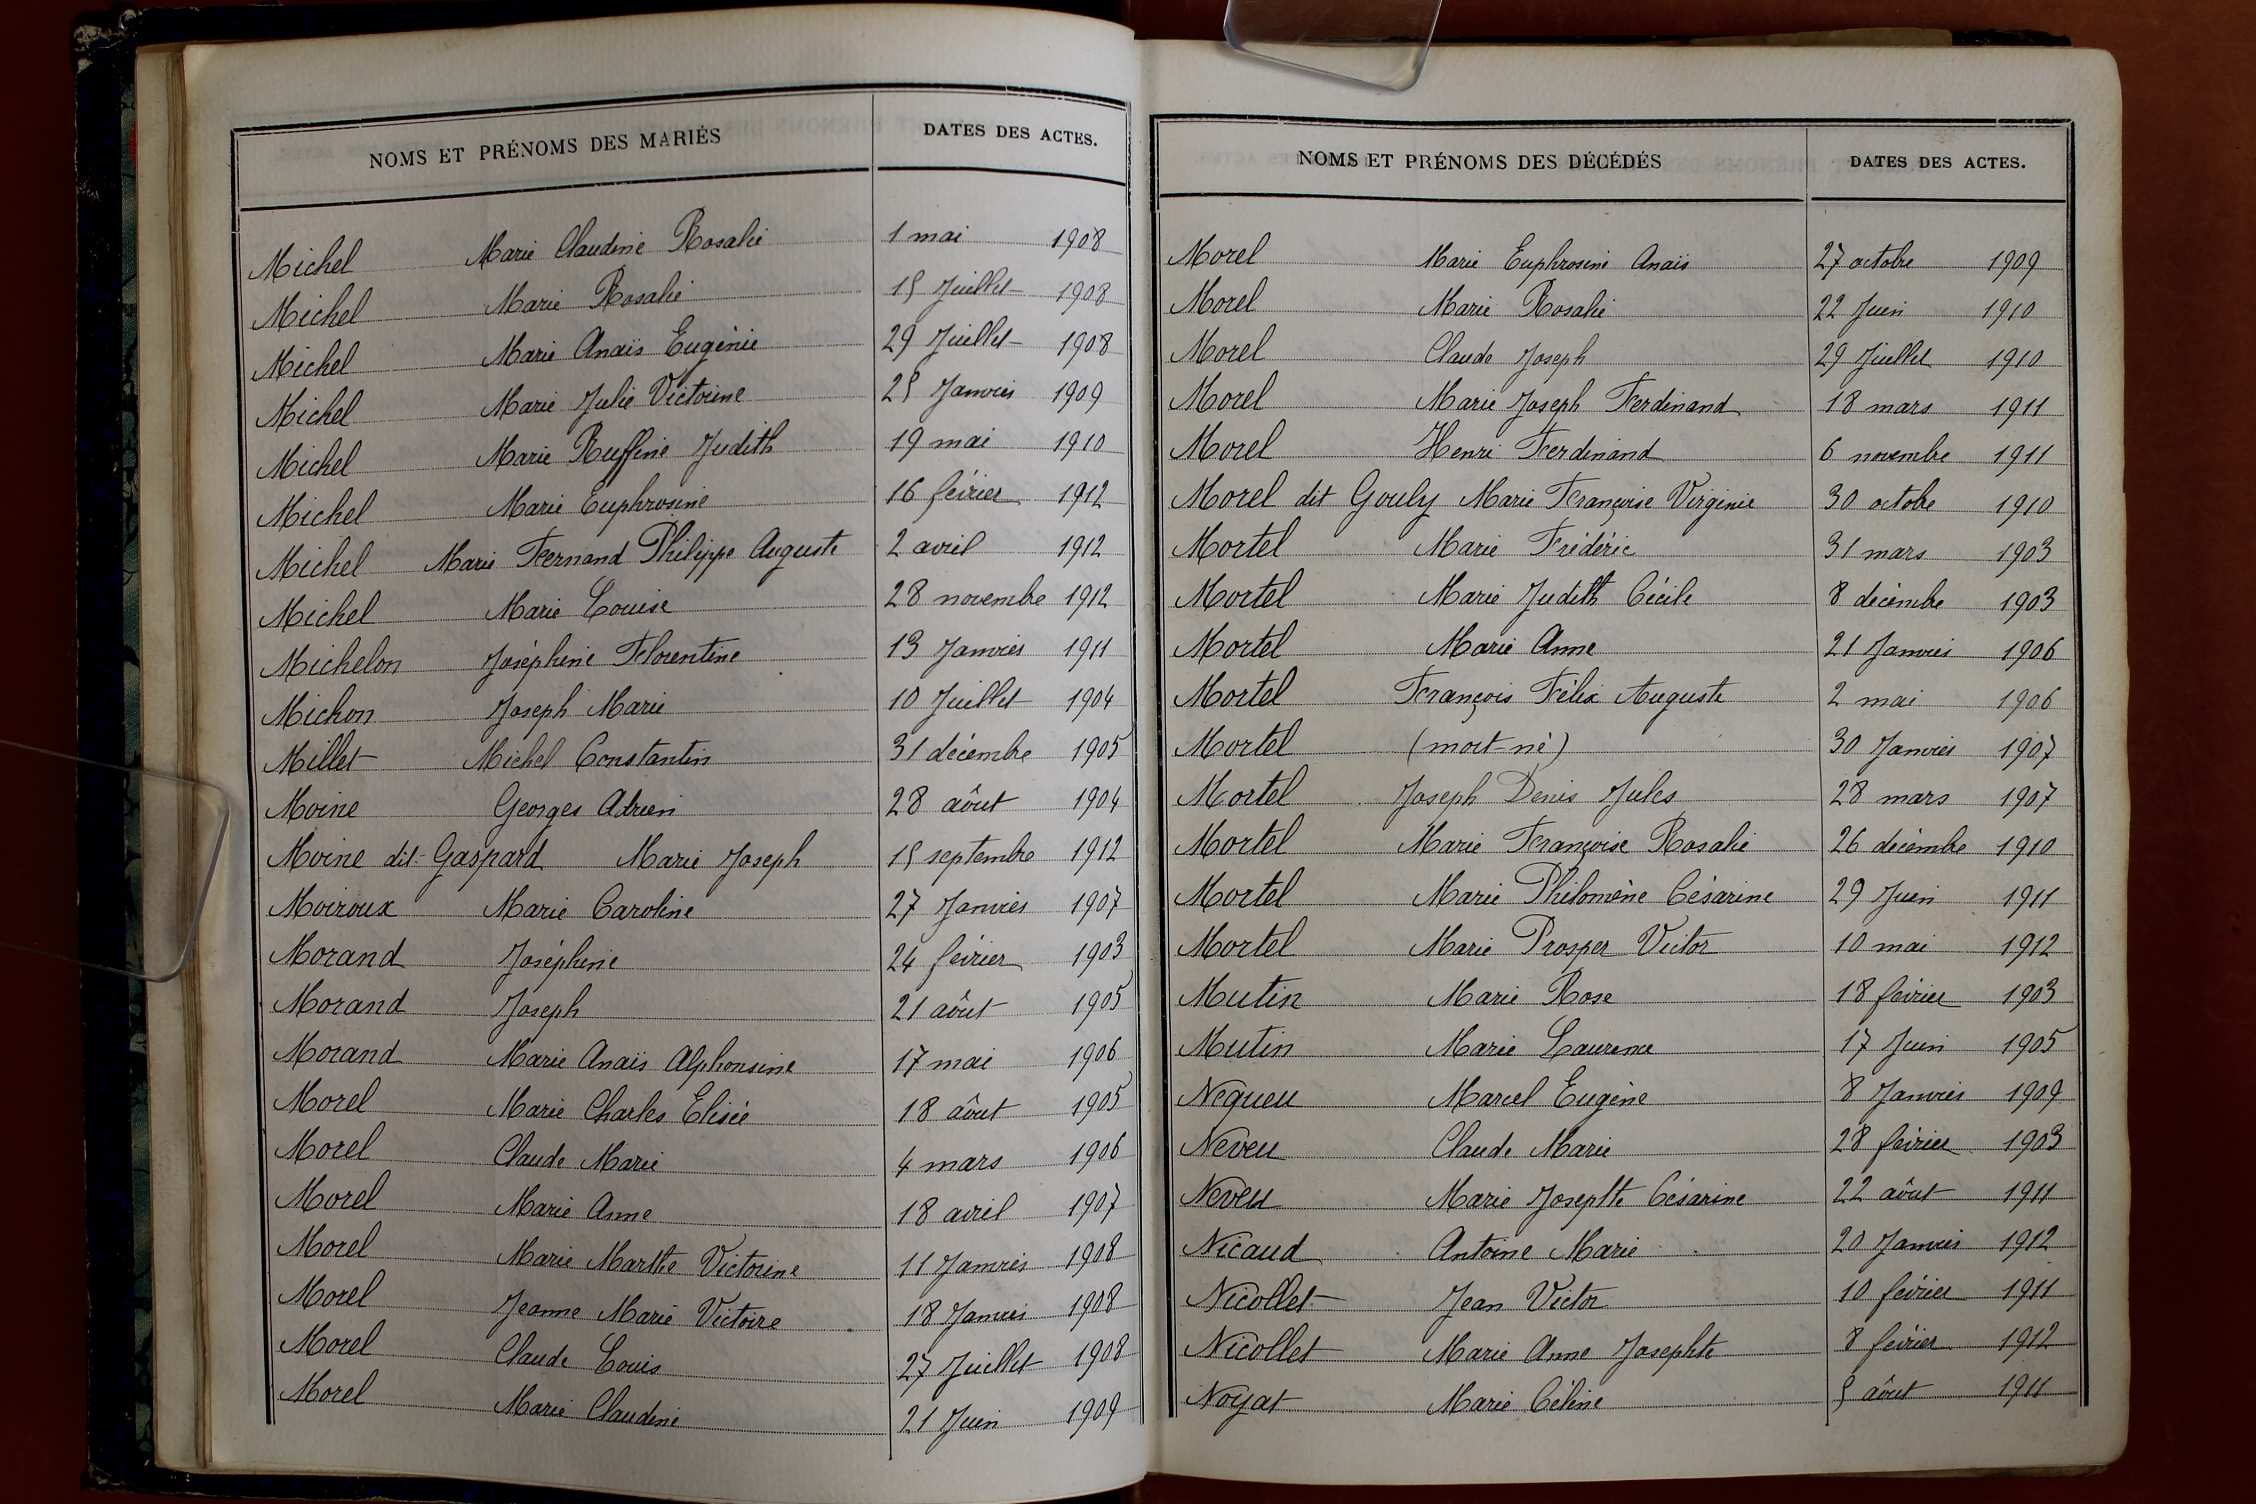 NOMS ET PRÉNOMS DES MARIÉS DATES DES ACTES.
Michel Marie Claudine Rosalie 1 mai 1908
Michel Marie Rosalie 15 Juillet 1908
Michel Marie Anaïs Eugénie 29 Juillet 1908
Michel Marie Julie Victorine 25 Janvier 1909
Michel Marie Ruffine Judith 19 mai 1910
Michel Marie Euphrosine 16 février 1912
Michel Marie Fernand Philippe Auguste 2 avril 1912
Michel Marie Louise 28 novembre 1912
Michelon Joséphine Florentine 13 Janvier 1911
Michon Joseph Marie 10 Juillet 1904
Millet Michel Constantin 31 décembre 1905
Moine Georges Adrien 28 aôut 1904
Moine dit Gaspard Marie Joseph 15 septembre 1912
Moiroux Marie Caroline 27 Janvier 1907
Morand Joséphine 24 février 1903
Morand Joseph 21 aôut 1905
Morand Marie Anaïs Alphonsine 17 mai 1906
Morel Marie Charles Elisée 18 aôut 1905
Morel Claude Marie 4 mars 1906
Morel Marie Anne 18 avril 1907
Morel Marie Marthe Victorine 11 Janvier 1908
Morel Jeanne Marie Victoire 18 Janvier 1908
Morel Claude Louis 27 Juillet 1908
Morel Marie Claudine 21 Juin 1909
NOMS ET PRÉNOMS DES DÉCÉDÉS DATES DES ACTES.
Morel Marie Euphrosine Anaïs 27 octobre 1909
Morel Marie Rosalie 22 Juin 1910
Morel Claude Joseph 29 Juillet 1910
Morel Marie Joseph Ferdinand 18 mars 1911
Morel Henri Ferdinand 6 novembre 1911
Morel dit Gouly Marie Françoise Virginie 30 octobre 1910
Mortel Marie Frédéric 31 mars 1903
Mortel Marie Judith Cécile 8 décembre 1903
Mortel Marie Anne 21 Janvier 1906
Mortel François Félix Auguste 2 mai 1906
Mortel (mort-né) 30 Janvier 1907
Mortel Joseph Denis Jules 28 mars 1907
Mortel Marie Françoise Rosalie 26 décembre 1910
Mortel Marie Philomène Césarine 29 Juin 1911
Mortel Marie Prosper Victor 10 mai 1912
Mutin Marie Rose 18 février 1903
Mutin Marie Laurence 17 Juin 1905
Nequeu Marcel Eugène 8 Janvier 1909
Neveu Claude Marie 28 février 1903
Neveu Marie Josephte Césarine 22 aôut 1911
Nicaud Antoine Marie 20 Janvier 1912
Nicollet Jean Victor 10 février 1911
Nicollet Marie Anne Josephte 8 février 1912
Noyat Marie Céline 5 aôut 1911